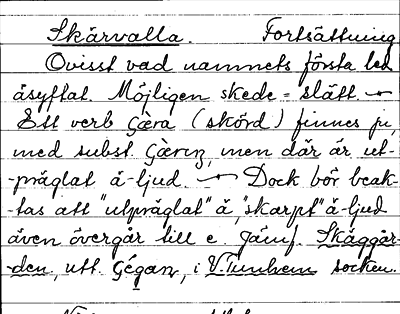 Skärvalla. Fortsättning
Ovisst vad namnets första led
åsyftat. Möjligen skede = slätt. —
Ett verb gæra (skörd) finnes ju,
med subst. gæriŋ, men där är ut-
-präglat ä-ljud. — Dock bör beak-
-tas att "utpräglat" ä, "skarpt" ä-ljud
även övergår till e jämf. Skäggår-
-den, utt. gégaṇ, i V. Tunhem socken.